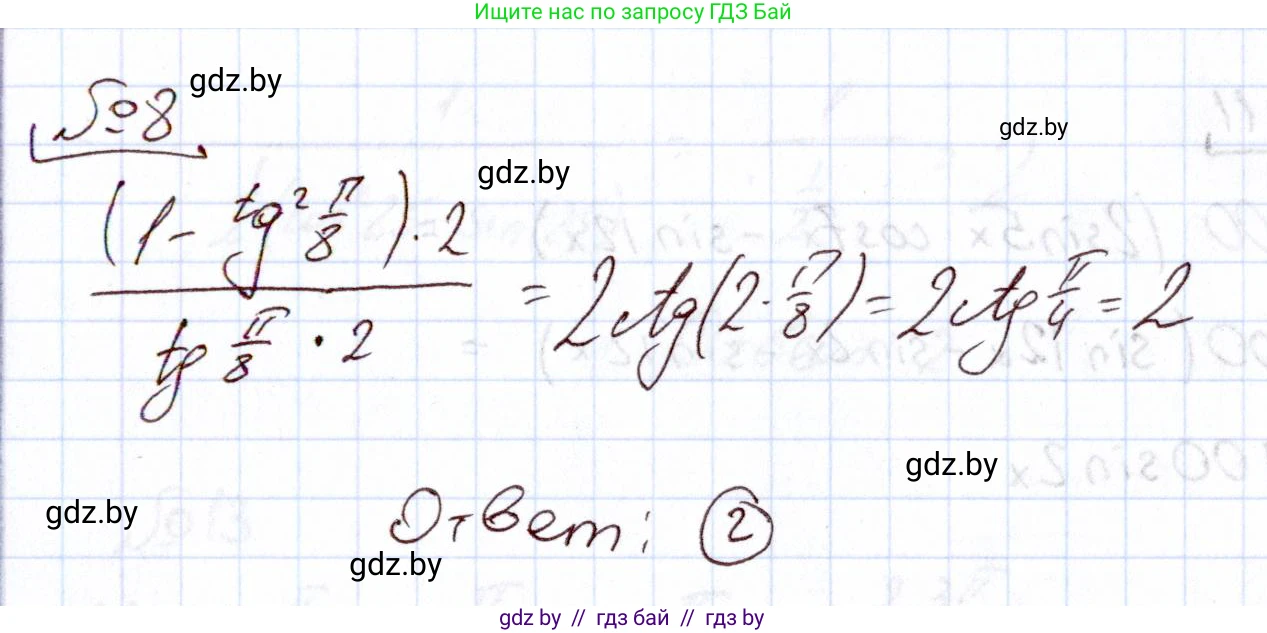 Ищите нас по запросу ГДЗ Бай
№8
gdz.by
gdz.by
gdz.by
(1 - tg² π/8) · 2 / tg π/8 · 2 = 2 ctg (2 · π/8) = 2 ctg π/4 = 2
gdz.by
gdz.by
Ответ: 2
gdz.by
gdz.by // гдз бай // гдз by